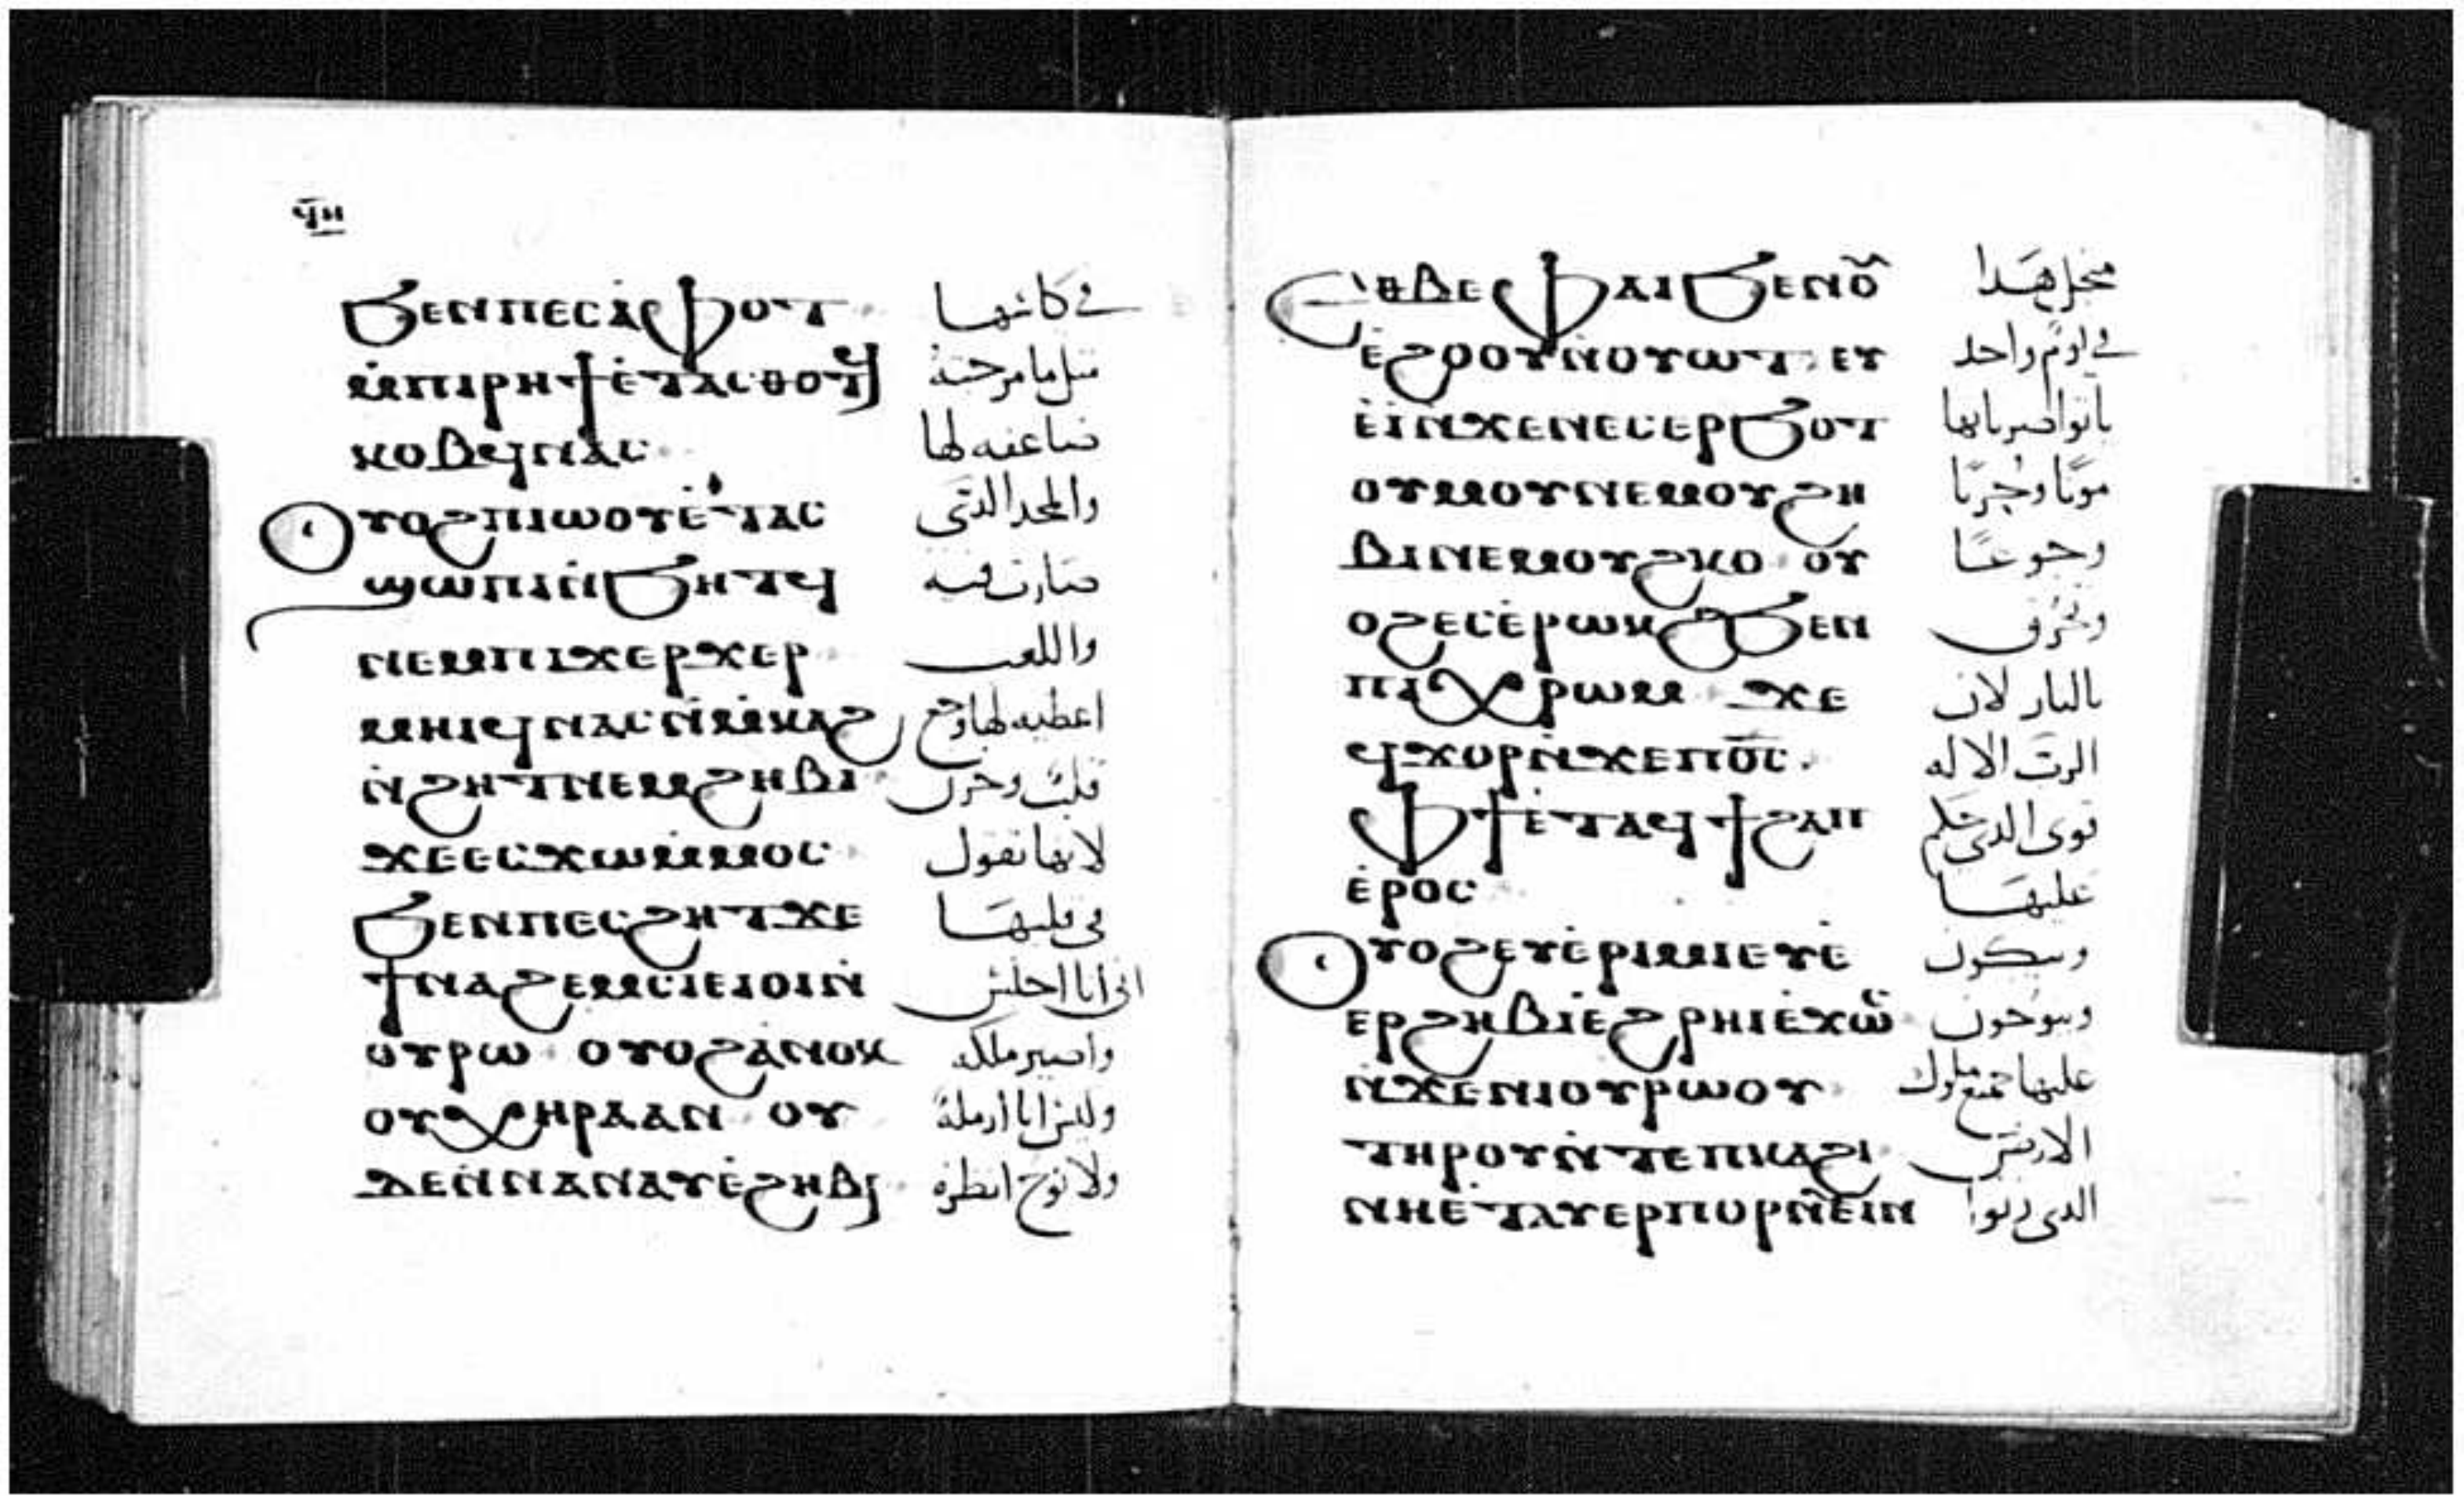 ϥⲏ
ϧⲉⲛⲡⲉⲥⲁ̀ⲫⲟⲧ في كاسها
ⲙ̀ⲡⲓⲣⲏϯⲉ̀ⲧⲁⲥⲑⲟⲧϥ مثل ما مزجته
ⲕⲟⲃϥⲛⲁⲥ ضاعفه لها
ⲟⲩⲟϩⲡⲓⲱⲟⲩⲉ̀ⲧⲁⲥ والمجد الدتي
ϣⲱⲡⲓⲛ̀ϧⲏⲧϥ صارت فيه
ⲛⲉⲙⲡⲓϫⲉⲣϫⲉⲣ واللعب
ⲙⲏⲓϥⲛⲁⲥⲛ̀ⲙ̀ⲕⲁϩ اعطيه لها وجع
ⲛ̀ϩⲏⲧⲛⲉⲙϩⲏⲃⲓ قلب وحزن
ϫⲉⲉⲥϫⲱⲙ̀ⲙⲟⲥ لانها تقول
ϧⲉⲛⲡⲉⲥϩⲏⲧϫⲉ في قلبها
ϯⲛⲁϩⲉⲙⲥⲓⲉⲓⲟⲓⲛ̀ اني انا اجلس
ⲟⲩⲣⲱ ⲟⲩⲟϩⲁ̀ⲛⲟⲕ واصير ملكه
ⲟⲩⲭⲏⲣⲁⲁⲛ ⲟⲩ وليس انا ارملة
ⲇⲉⲛ̀ⲛⲁⲛⲁⲩⲉ̀ϩⲏⲃⲓ ولا نوح انظره
ⲉⲑⲃⲉⲫⲁⲓϧⲉⲛⲟ̅ⲩ̅ منجل هدا
ⲉ̀ϩⲟⲟⲩⲛ̀ⲟⲩⲱⲧ ⲉⲩ في يوم واحد
ⲉ̀ⲓ̀ⲛ̀ϫⲉⲛⲉⲥⲉⲣϧⲟⲧ ياتوا ضرباتها
ⲟⲩⲙⲟⲩⲛⲉⲙⲟⲩϩⲏ موتا وحزنا
ⲃⲓⲛⲉⲙⲟⲩϩⲕⲟ ⲟⲩ وجوعا
ⲟϩⲉⲥⲉ̀ⲣⲱⲕϩϧⲉⲛ وتحرق
ⲡⲓⲭⲣⲱⲙ ϫⲉ بالنار لان
ϥϫⲟⲣⲛ̀ϫⲉⲡⲟ̅ⲥ̅ الرب الاله
ⲫϯⲉ̀ⲧⲁϥϯϩⲁⲡ قوى الدي حكم
ⲉ̀ⲣⲟⲥ عليها
ⲟⲩⲟϩⲉⲩⲉ̀ⲣⲓⲙⲓⲉⲩⲉ̀ ويبكون
ⲉⲣϩⲏⲃⲓⲉ̀ϩⲣⲏⲓⲉ̀ϫⲱⲥ وينوحون
ⲛ̀ϫⲉⲛⲓⲟⲩⲣⲱⲟⲩ عليها جميع ملوك
ⲧⲏⲣⲟⲩⲛ̀ⲧⲉⲡⲕⲁϩⲓ الارض
ⲛⲏⲉ̀ⲧⲁⲩⲉⲣⲡⲟⲣⲛⲉⲓⲛ الدي زنوا